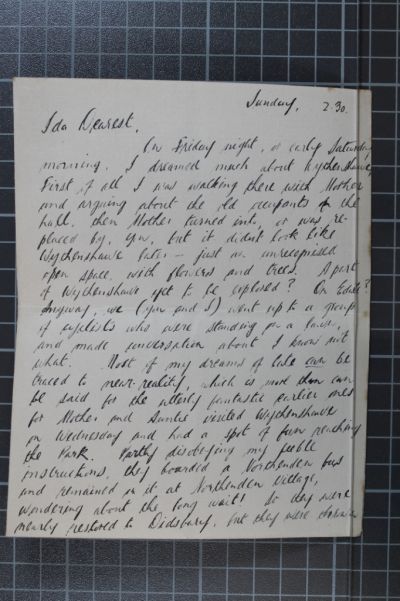 Sunday, 2.30.
Ida Dearest,
On Friday night, or early Saturday
morning, I dreamed much about Wythenshawe,
First of all I was walking there with Mother
and arguing about the old occupants of the
hall, then Mother turned into, or was re-
placed by, you, but it didn't look like
Wythenshawe later — just an unrecognised
open space, with flowers and trees. A part
of Wythenshawe yet to be explored? Or Edale?
Anyway, we (you and I) went up to a group
of cyclists who were standing on a lawn,
and made conversation about I know not
what. Most of my dreams of late can be
traced to near-reality, which is more than can
be said for the utterly fantastic earlier ones
for Mother and Auntie visited Wythenshawe
on Wednesday and had a spot of fun reaching
the Park. Partly disobeying my feeble
instructions, they boarded a Northenden bus
and remained in it at Northenden Village,
wondering about the long wait! So they were
nearly restored to Didsbury, but they were